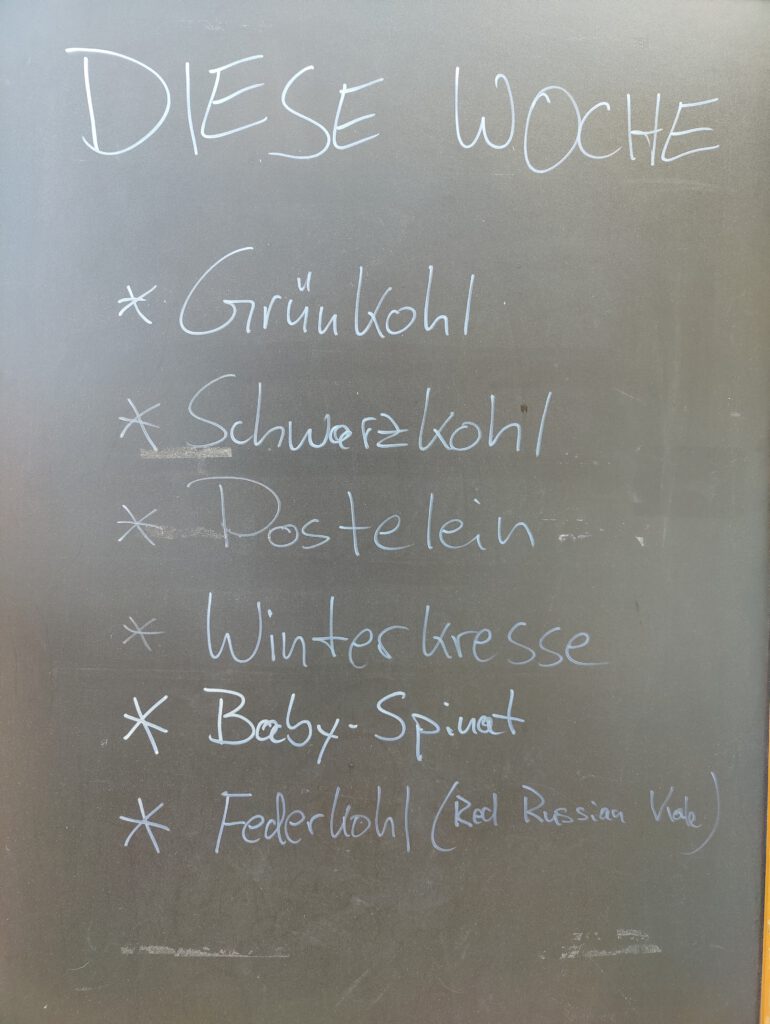 DIESE WOCHE
* Grünkohl
* Schwarzkohl
* Postelein
* Winterkresse
* Baby-Spinat
* Federkohl (Red Russian Kale)